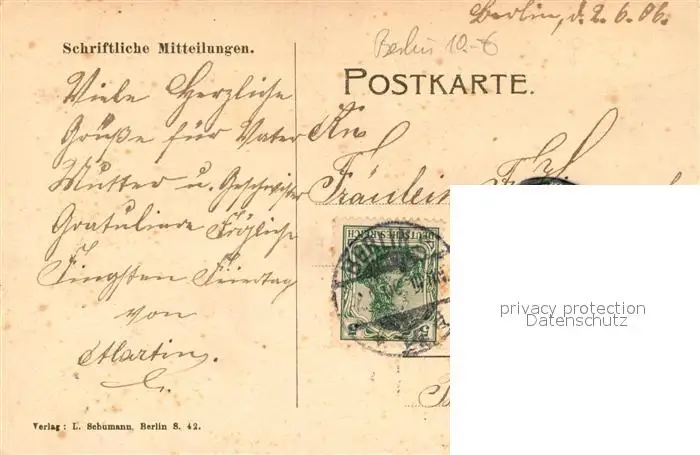 Berlin, d. 2.6.06.
Berlin 10.-6
Schriftliche Mitteilungen.
POSTKARTE.
Viele Herzliche
Grüße für Vater
Mutter u. Geschwister
Gratuliere Fröliche
Fingsten Feiertag
von
Martin.
An
Fräulein
DEUTSCHES REICH
5
5
BERLIN
privacy protection
Datenschutz
Verlag: L. Schumann, Berlin S. 42.